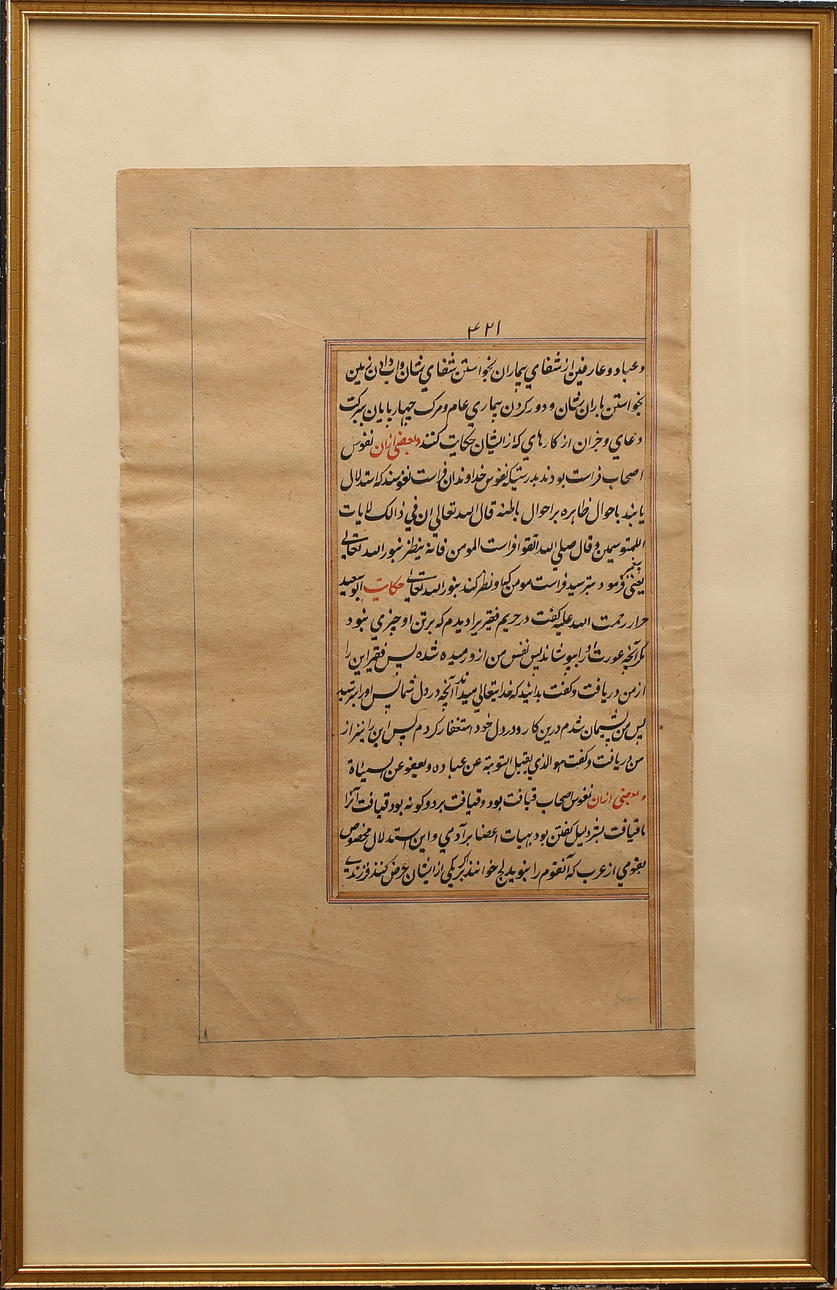 ۴۲۱
و عباد و عارفین از شفای بیماران بخواستن شفای شان و آب دادن زمین
بخواستن باران شان و دور کردن بیماری عام و مرک چهار پایان ببرکت
دعای و جز آن از کارهای که از ایشان حکایت کنند و بعضی ازان نفوس
اصحاب فراست بودند بدرستیکه نفوس خداوندان فراست نفوسند که استدلال
یابند باحوال ظاهره بر احوال باطنه قال الله تعالی ان فی ذالک لایات
اللمتوسمین و قال صلی الله اتقوا فراست المومن فانه ینظر بنور الله تعالی
یعنی پیغمبر فرمود بترسید فراست مومن که او نظر کند بنور الله تعالی حکایت ابو سعید
خراز رحمت الله علیه کفت در حریم فقیر برا دیدم که بر تن او چیزی نبود
مکر آنچه عورت او را بپوشاند پس نفس من از و رمیده شده پس فقیر این را
از من دریافت و کفت بدانید که خدایتعالی میداند آنچه در دل شماس پس او را بترسید
پس من پشیمان شدم درین کار و در دل خود استغفار کردم پس این را نیز از
من دریافت و کفت هو الذی یقبل التوبة عن عباده و یعفو عن السیاة
و بعضی ازان نفوس اصحاب قیافت بود و قیافت بر دو کونه بود قیافت آثار
با قیافت بشر دلیل کفتن بود بهیات اعضا بر آدمی و این استدلال مخصوص
بقومی از عرب که آنقوم را بنو مدلج خوانند کر یکی از ایشان عرض کنند فرزندی